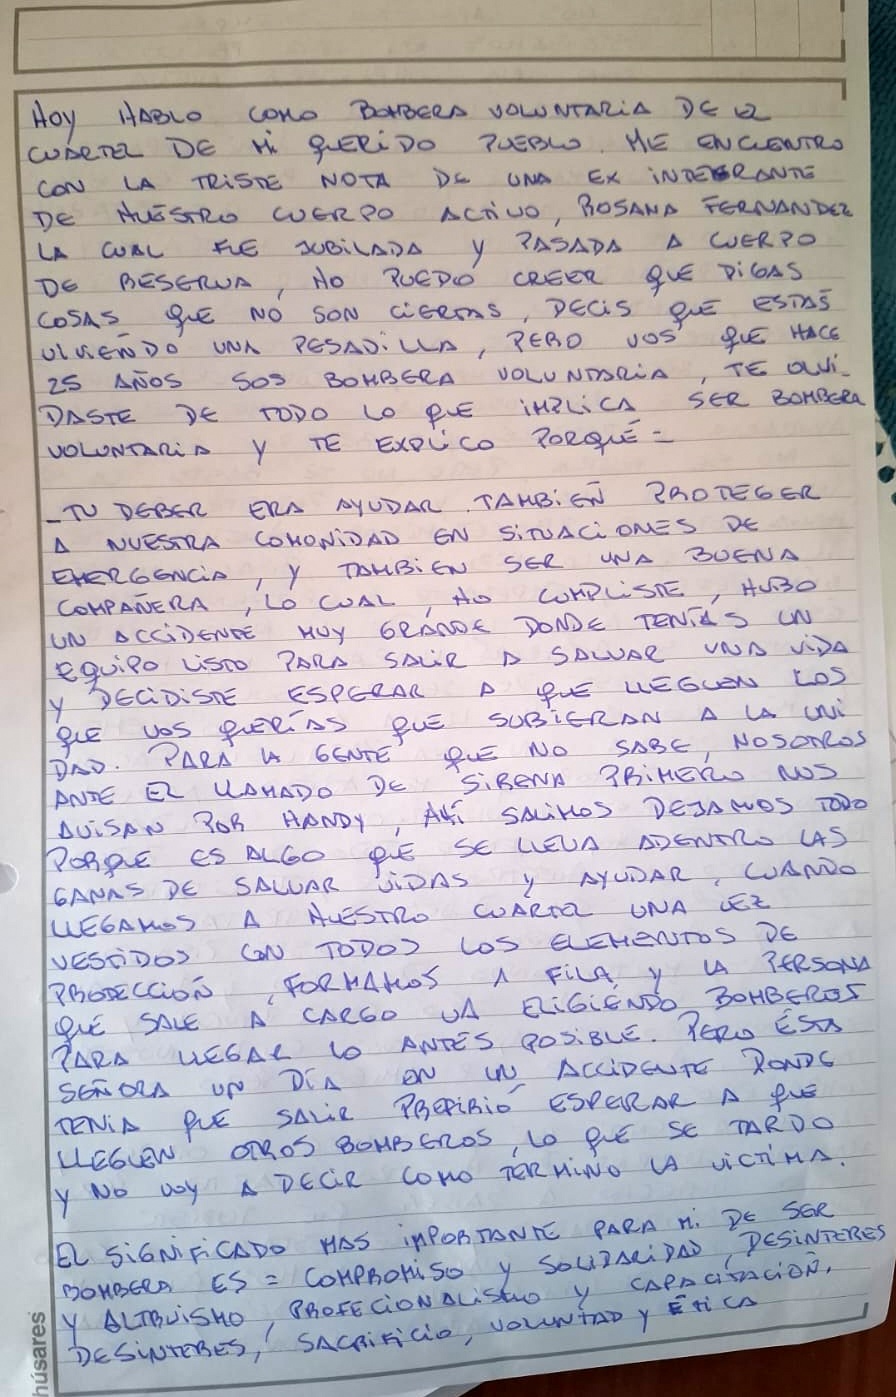 HOY HABLO COMO BOMBERA VOLUNTARIA DE LA
CUARTEL DE MI QUERIDO PUEBLO. ME ENCUENTRO
CON LA TRISTE NOTA DE UNA EX INTEGRANTE
DE NUESTRO CUERPO ACTIVO, ROSANA FERNANDEZ
LA CUAL FUE JUBILADA Y PASADA A CUERPO
DE RESERVA, NO PUEDO CREER QUE DIGAS
COSAS QUE NO SON CIERTAS, DECIS QUE ESTAS
VIVIENDO UNA PESADILLA, PERO VOS QUE HACE
25 AÑOS SOS BOMBERA VOLUNTARIA, TE OLVI-
DASTE DE TODO LO QUE IMPLICA SER BOMBERA
VOLUNTARIA Y TE EXPLICO PORQUÉ =
- TU DEBER ERA AYUDAR TAMBIEN PROTEGER
A NUESTRA COMONIDAD EN SITUACIONES DE
EMERGENCIA, Y TAMBIEN SER UNA BUENA
COMPAÑERA, LO CUAL, NO CUMPLISTE, HUBO
UN ACCIDENTE MUY GRANDE DONDE TENÍAS UN
EQUIPO LISTO PARA SALIR A SALVAR UNA VIDA
Y DECIDISTE ESPERAR A QUE LLEGUEN LOS
QUE VOS QUERÍAS QUE SUBIERAN A LA UNI
DAD. PARA LA GENTE QUE NO SABE, NOSOTROS
ANTE EL LLAMADO DE SIRENA PRIMERO NOS
AVISAN POR HANDY, AHÍ SALIMOS DEJAMOS TODO
PORQUE ES ALGO QUE SE LLEVA ADENTRO LAS
GANAS DE SALVAR VIDAS Y AYUDAR, CUANDO
LLEGAMOS A NUESTRO CUARTEL UNA VEZ
VESTIDOS CON TODOS LOS ELEMENTOS DE
PROTECCIÓN, FORMAMOS 1 FILA, Y LA PERSONA
QUE SALE A CARGO VA ELIGIENDO BOMBEROS
PARA LLEGAR LO ANTES POSIBLE. PERO ESTA
SEÑORA UN DÍA EN UN ACCIDENTE DONDE
TENIA QUE SALIR PREFIRIÓ ESPERAR A QUE
LLEGUEN OTROS BOMBEROS, LO QUE SE TARDO
Y NO VOY A DECIR COMO TERMINO LA VICTIMA.
EL SIGNIFICADO MAS IMPORTANTE PARA MI DE SER
BOMBERA ES = COMPROMISO Y SOLIDARIDAD, DESINTERES
Y ALTRUISMO, PROFECIONALISMO Y CAPACITACIÓN,
DESINTERES, SACRIFICIO, VOLUNTAD Y ETICA
húsares